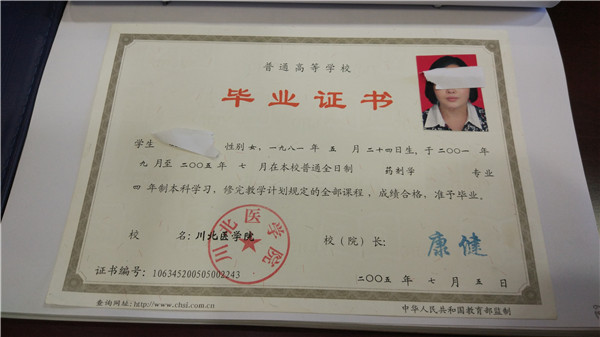 普通高等学校
毕业证书
学生 性别 女，一九八一 年 五 月 二十四日生，于二〇〇一 年
九 月至 二〇〇五 年 七 月在本校普通全日制 药剂学 专业
四 年制本科学习，修完教学计划规定的全部课程，成绩合格，准予毕业。
川北医学院
校 名：川北医学院 校（院）长： 康健
证书编号：106345200505002243 二〇〇五 年 七 月 五 日
查询网址：http://www.chsi.com.cn 中华人民共和国教育部监制